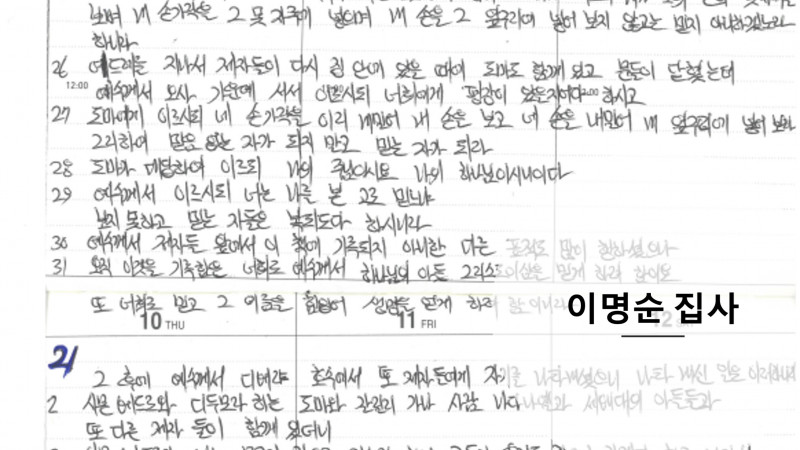 보며 내 손가락을 그 못 자국에 넣으며 내 손을 그 옆구리에 넣어 보지 않고는 믿지 아니하겠노라
하니라
26 여드레를 지나서 제자들이 다시 집 안에 있을 때에 도마도 함께 있고 문들이 닫혔는데
12:00 예수께서 오사 가운데 서서 이르시되 너희에게 평강이 있을지어다 하시고
27 도마에게 이르시되 네 손가락을 이리 내밀어 내 손을 보고 네 손을 내밀어 내 옆구리에 넣어 보라
그리하여 믿음 없는 자가 되지 말고 믿는 자가 되라
28 도마가 대답하여 이르되 나의 주님이시요 나의 하나님이시니이다
29 예수께서 이르시되 너는 나를 본 고로 믿느냐
보지 못하고 믿는 자들은 복되도다 하시니라
30 예수께서 제자들 앞에서 이 책에 기록되지 아니한 다른 표적도 많이 행하셨으나
31 오직 이것을 기록함은 너희로 예수께서 하나님의 아들 그리스도이심을 믿게 하려 함이요
또 너희로 믿고 그 이름을 힘입어 생명을 얻게 하려 함이니라
10 THU 11 FRI 12
이명순 집사
21
그 후에 예수께서 디베랴 호숫에서 또 제자들에게 자기를 나타내셨으니 나타내신 일은 이러하니라
2 시몬 베드로와 디두모라 하는 도마와 갈릴리 가나 사람 나다나엘과 세베대의 아들들과
또 다른 제자 둘이 함께 있더니